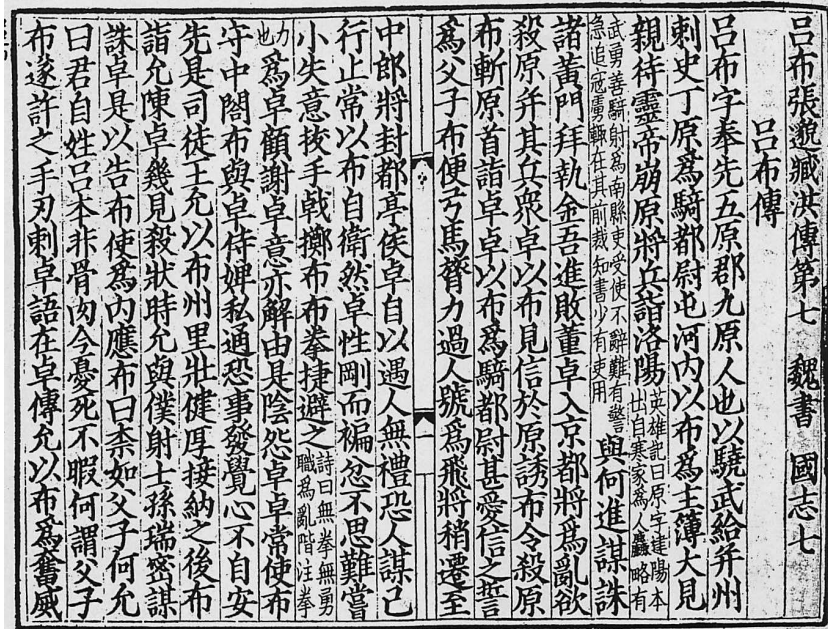 呂布張邈臧洪傳第七　魏書　國志七
呂布傳
呂布字奉先五原郡九原人也以驍武給并州
刺史丁原爲騎都尉屯河内以布爲主簿大見
親待靈帝崩原將兵詣洛陽英雄記曰原字建陽本
出自寒家爲人麤略有
武勇善騎射爲南縣吏受使不辭難有警
急追寇虜輙在其前裁知書少有吏用與何進謀誅
諸黃門拜執金吾進敗董卓入京都將爲亂欲
殺原并其兵衆卓以布見信於原誘布令殺原
布斬原首詣卓卓以布爲騎都尉甚愛信之誓
爲父子布便弓馬膂力過人號爲飛將稍遷至
一
中郎將封都亭侯卓自以遇人無禮恐人謀己
行止常以布自衛然卓性剛而褊忿不思難嘗
小失意拔手戟擲布布拳捷避之詩曰無拳無勇
職爲亂階注拳
力
也爲卓顧謝卓意亦解由是陰怨卓卓常使布
守中閤布與卓侍婢私通恐事發覺心不自安
先是司徒王允以布州里壯健厚接納之後布
詣允陳卓幾見殺狀時允與僕射士孫瑞密謀
誅卓是以告布使爲内應布曰柰如父子何允
曰君自姓呂本非骨肉今憂死不暇何謂父子
布遂許之手刃刺卓語在卓傳允以布爲奮威